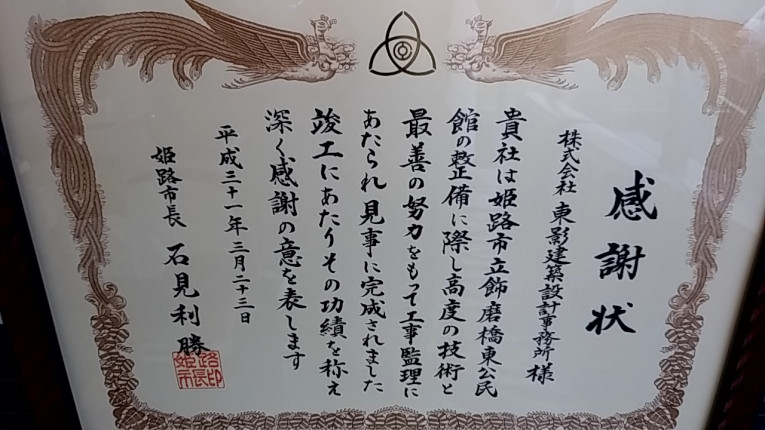 感謝状
株式会社 東影建築設計事務所 様
貴社は姫路市立飾磨橋東公民
館の整備に際し高度の技術と
最善の努力をもって工事監理に
あたられ見事に完成されました
竣工にあたりその功績を称え
深く感謝の意を表します
平成三十一年三月二十三日
姫路市長 石見利勝
姫路市長印